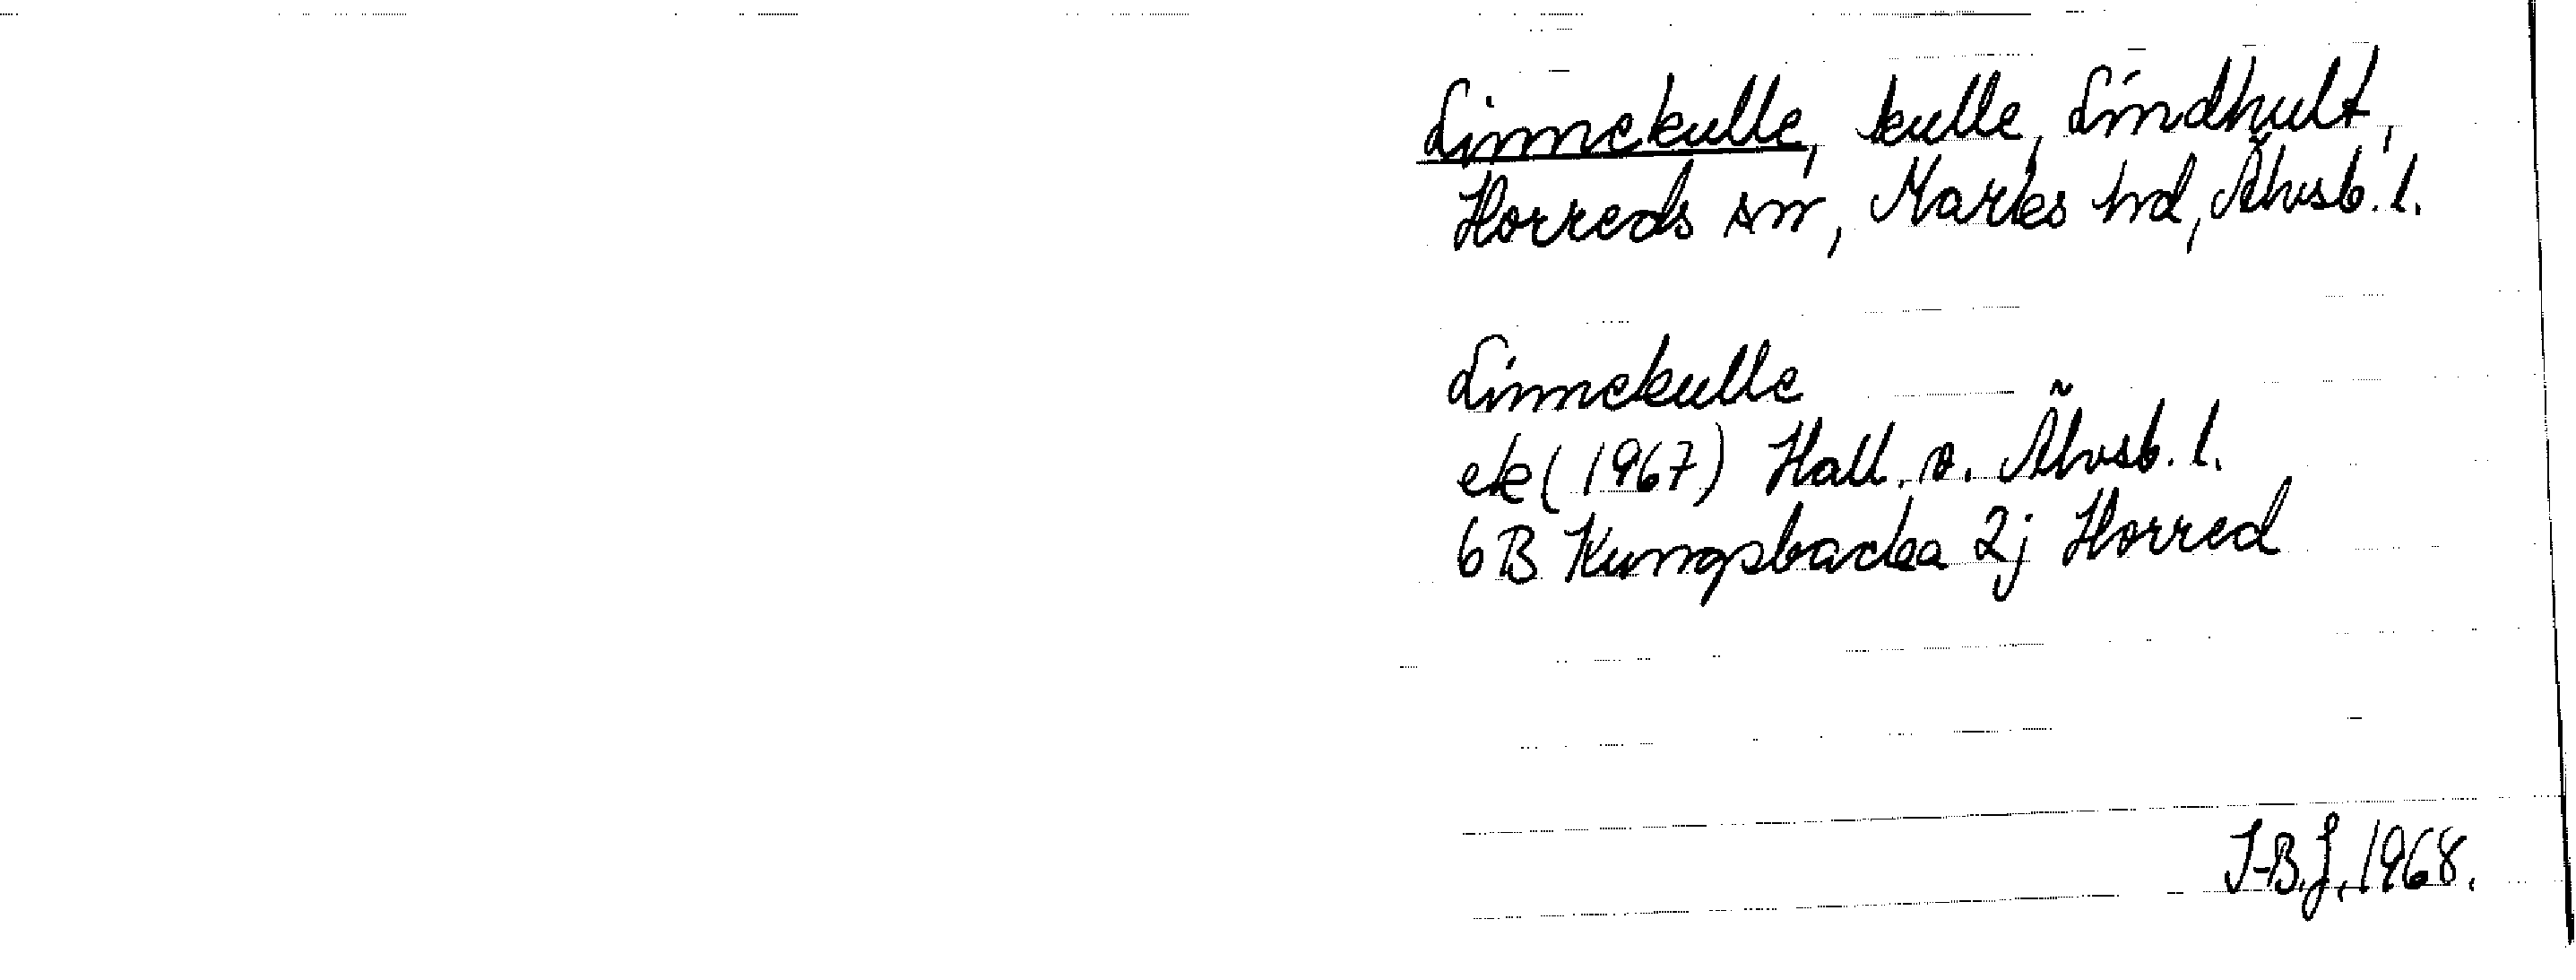 Linnekulle, kulle, Lindhult,
Horreds sn, Marks hd, Älvsb. l.
Linnekulle
ek (1967) Hall. o. Älvsb. l.
6B Kungsbacka 2j Horred
I-B.J. 1968.